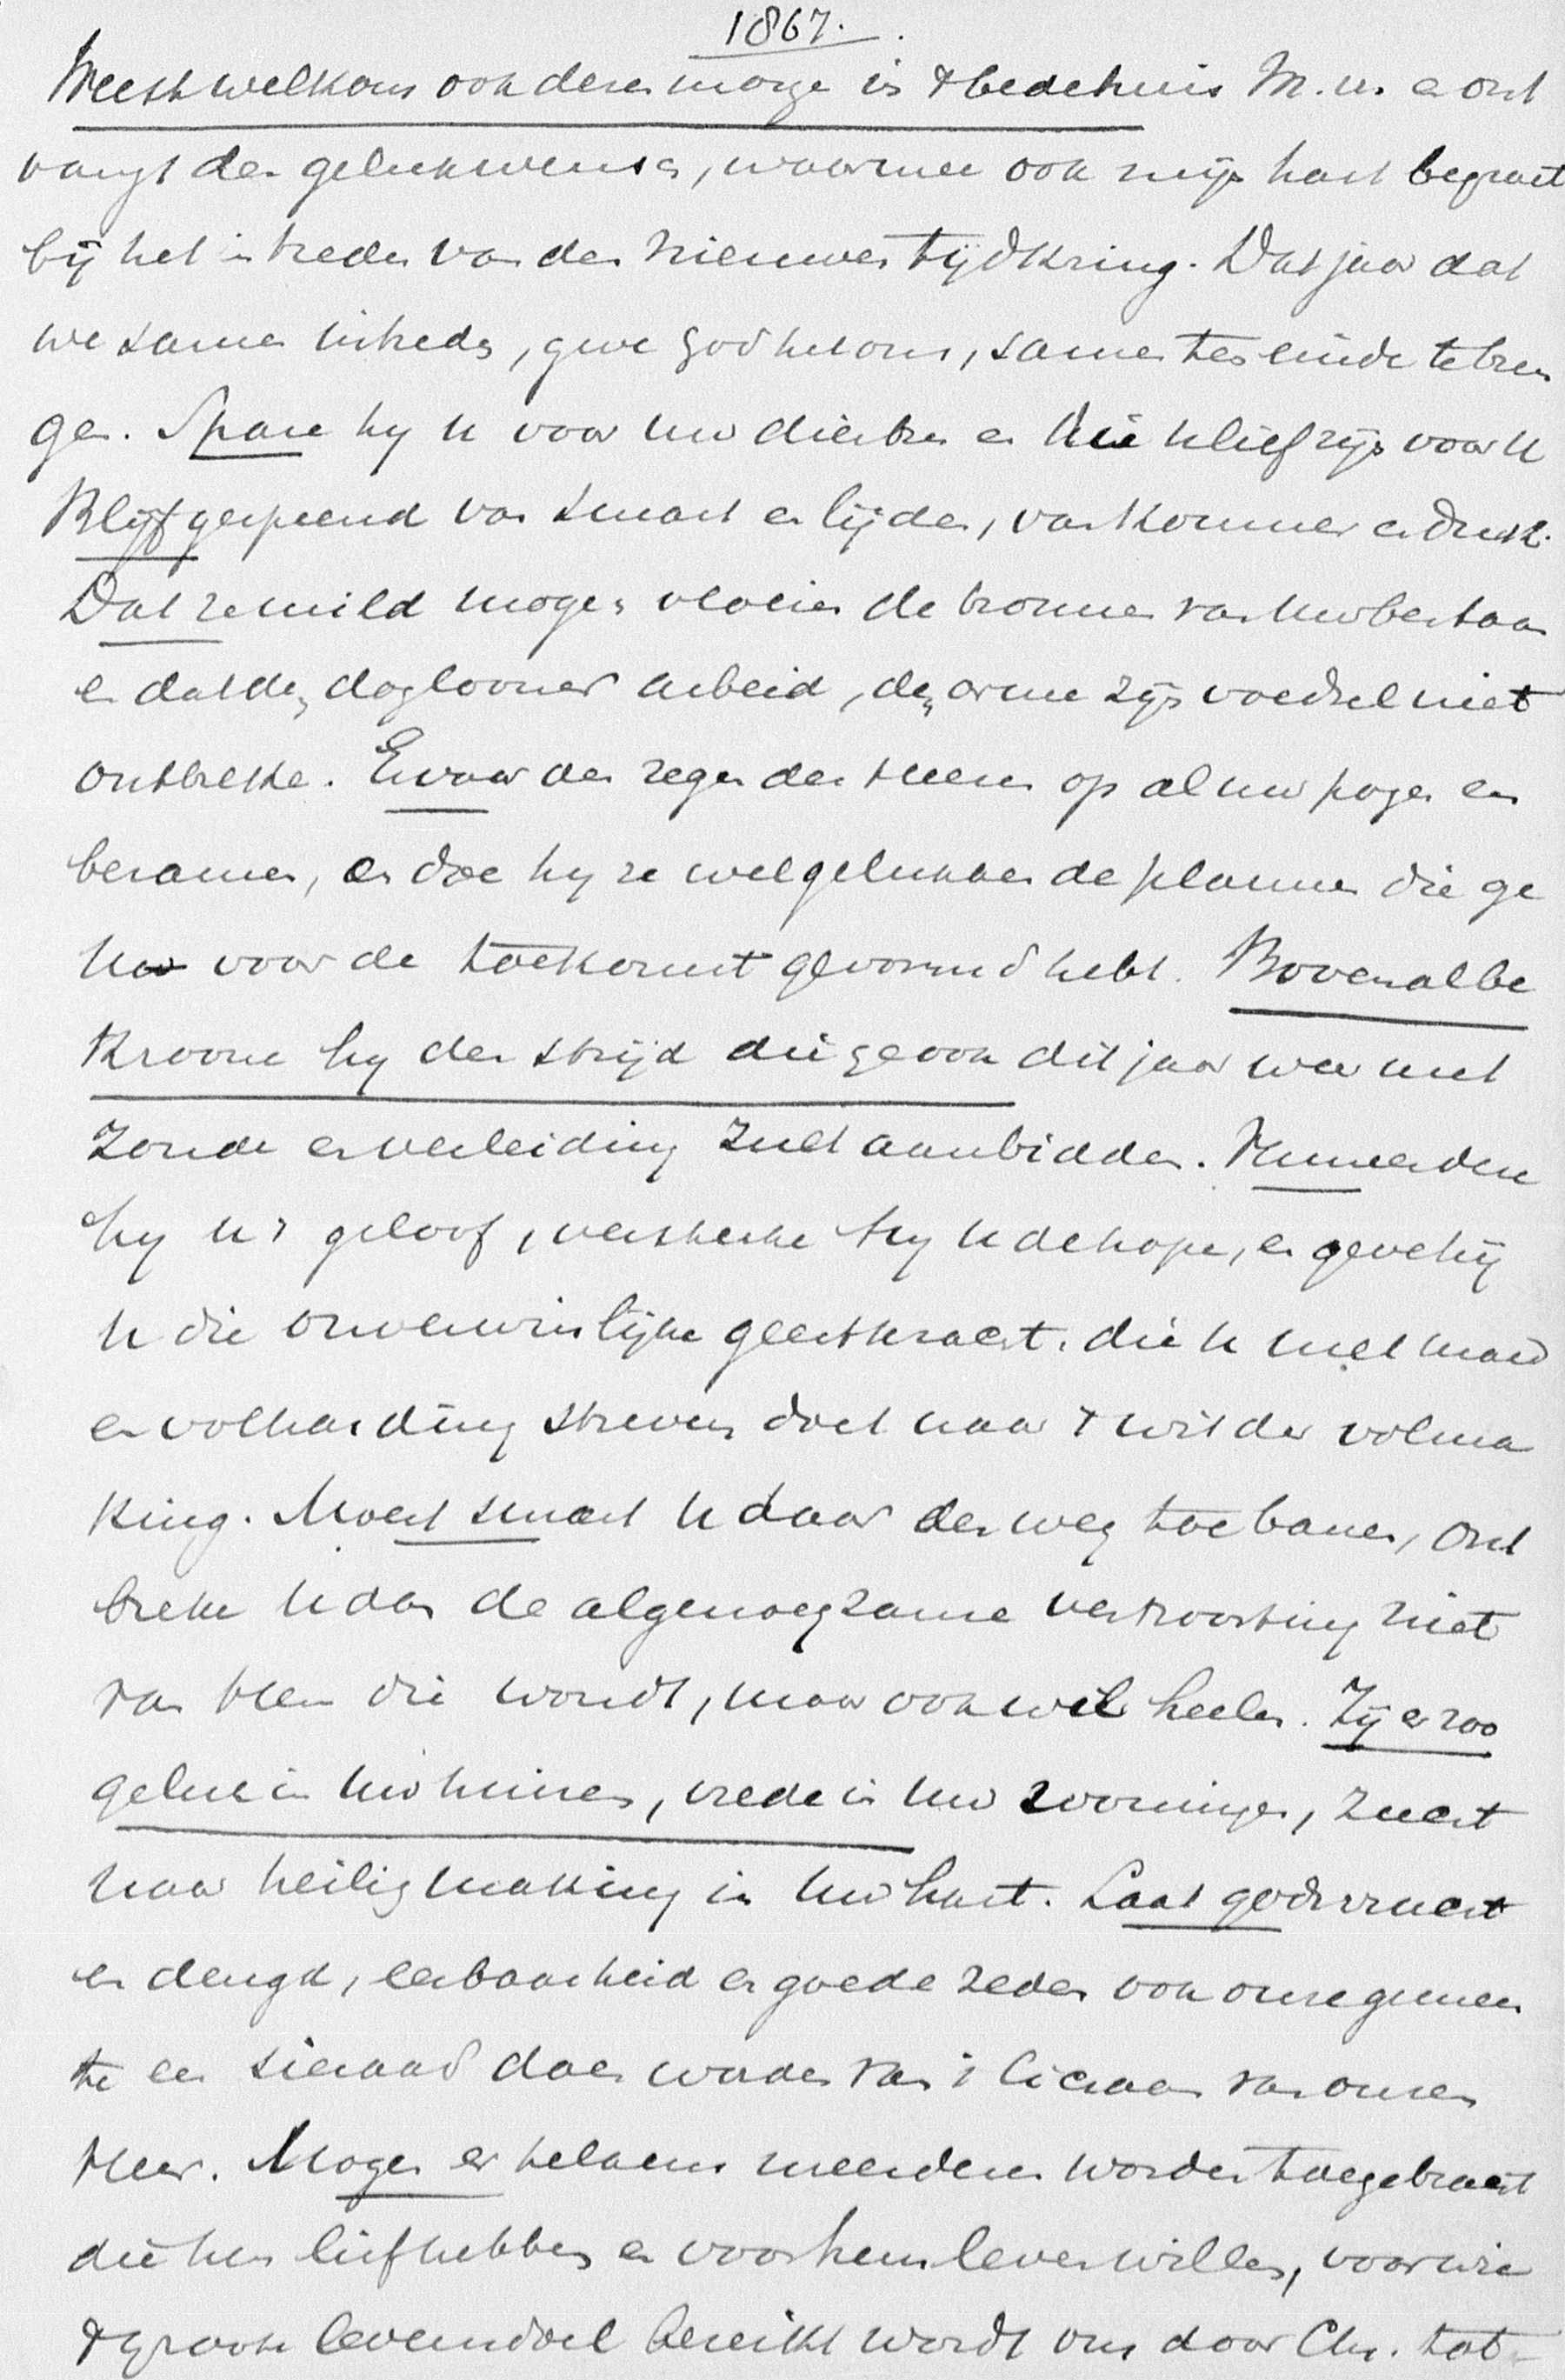 1867.
Weest welkom ook dezen morge in 't bedehuis M. vr. en ont
vangt den gelukwensch, waarmee ook mijn hart begroet
bij het intreden van den nieuwen tijdkring. Dat jaar dat
we samen intreden, geve God het ons, samen ten einde te bren
gen. Spare hij u voor uw dierbren en die u lief zijn voor u
Blijft gespeend van smart en lijden, van kommer en druk.
Dat ze mild mogen vloeien de bronnen van uw bestaan
en dat den daglooner arbeid, den arme zijn voedsel niet
ontbreke. Ervaar den zegen des Heeren op al uw pogen en
beramen, en doe hij ze welgelukken de plannen die ge
u voor de toekomst gevormd hebt. Bovenal be
kroone hij den strijd die ge ook dit jaar weer met
zonde en verleiding zult aanbidden. Vermeerdere
hij u 't geloof, versterke hij u de hope, en geve hij
u die onverwinlijke geestkracht, die u met moed
en volharding streven doet naar 't wit der volma
king. Moest smart u daar den weg toe banen, ont
breke u dan de algenoegzame vertroosting niet
van Hem die wondt, maar ook wil heelen. Zij er zoo
geluk in uw huizen, vrede in uw woningen, zucht
naar heiligmaking in uw hart. Laat godsvrucht
en deugd, eerbaarheid en goede zeden ook onze gemeen
te een sieraad doen worden van 't lichaam van onzen
Heer. Mogen er telkens meerderen worden toegebracht
die hem liefhebben en voor hem leven willen, voor wie
't groote levensdoel bereikt wordt om door Chr. tot